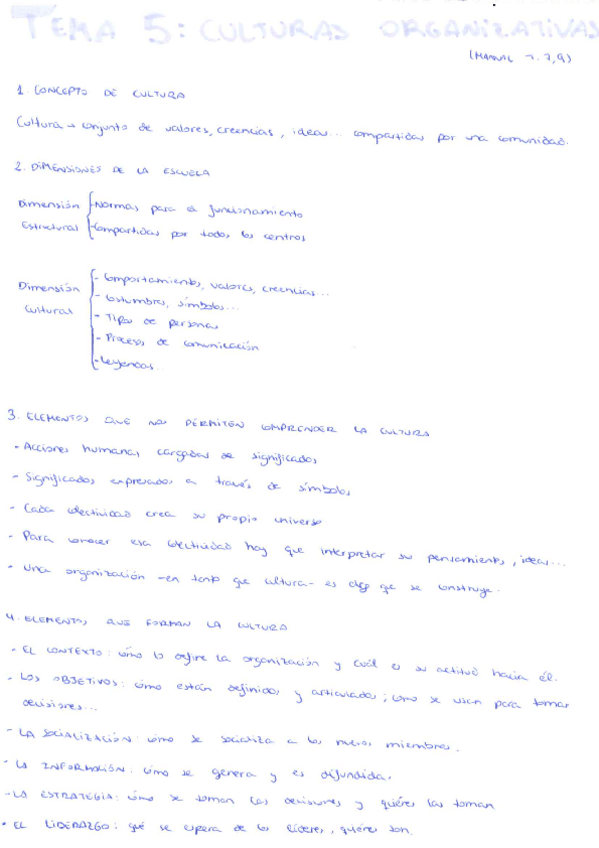 TEMA 5: CULTURAS ORGANIZATIVAS
(MANUAL T. 7,9)
1. CONCEPTO DE CULTURA
Cultura → conjunto de valores, creencias, ideas... compartidas por una comunidad.
2. DIMENSIONES DE LA ESCUELA
Dimensión Estructural
- Normas para el funcionamiento
- Compartidas por todos los centros
Dimensión Cultural
- Comportamientos, valores, creencias...
- Costumbres, símbolos...
- Tipos de personas
- Procesos de comunicación
- Leyendas
3. ELEMENTOS QUE NOS PERMITEN COMPRENDER LA CULTURA
- Acciones humanas cargadas de significados
- Significados expresados a través de símbolos
- Cada colectividad crea su propio universo
- Para conocer esa colectividad hay que interpretar su pensamiento, ideas...
- Una organización -en tanto que cultura- es algo que se construye.
4. ELEMENTOS QUE FORMAN LA CULTURA
- EL CONTEXTO: cómo lo define la organización y cuál es su actitud hacia él.
- LOS OBJETIVOS: cómo están definidos y articulados; cómo se usan para tomar
decisiones...
- LA SOCIALIZACIÓN: cómo se socializa a los nuevos miembros.
- LA INFORMACIÓN: cómo se genera y es difundida.
- LA ESTRATEGIA: cómo se toman las decisiones y quiénes las toman
- EL LIDERAZGO: qué se espera de los líderes, quiénes son.